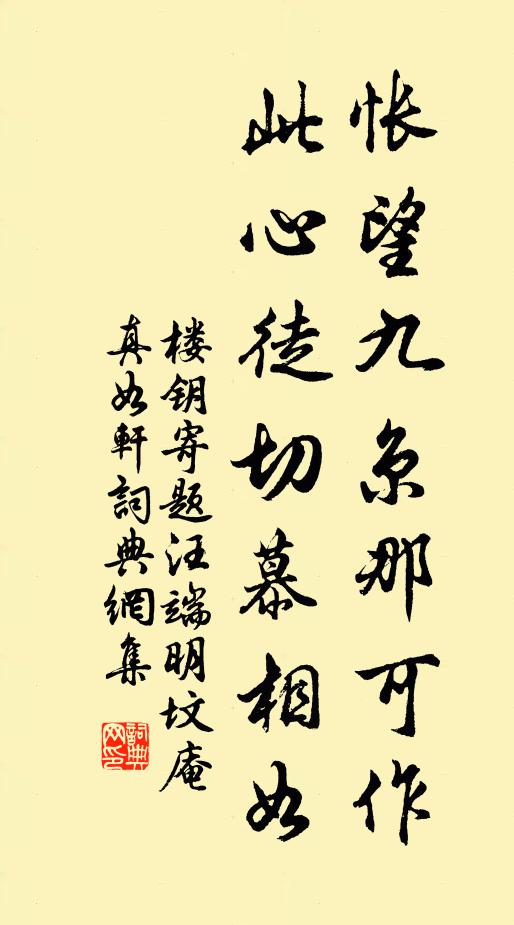 怅望九京那可作
此心徒切慕相如
楼钥寄题汪端明坟庵
真如軒詞典網集
詞典
网印